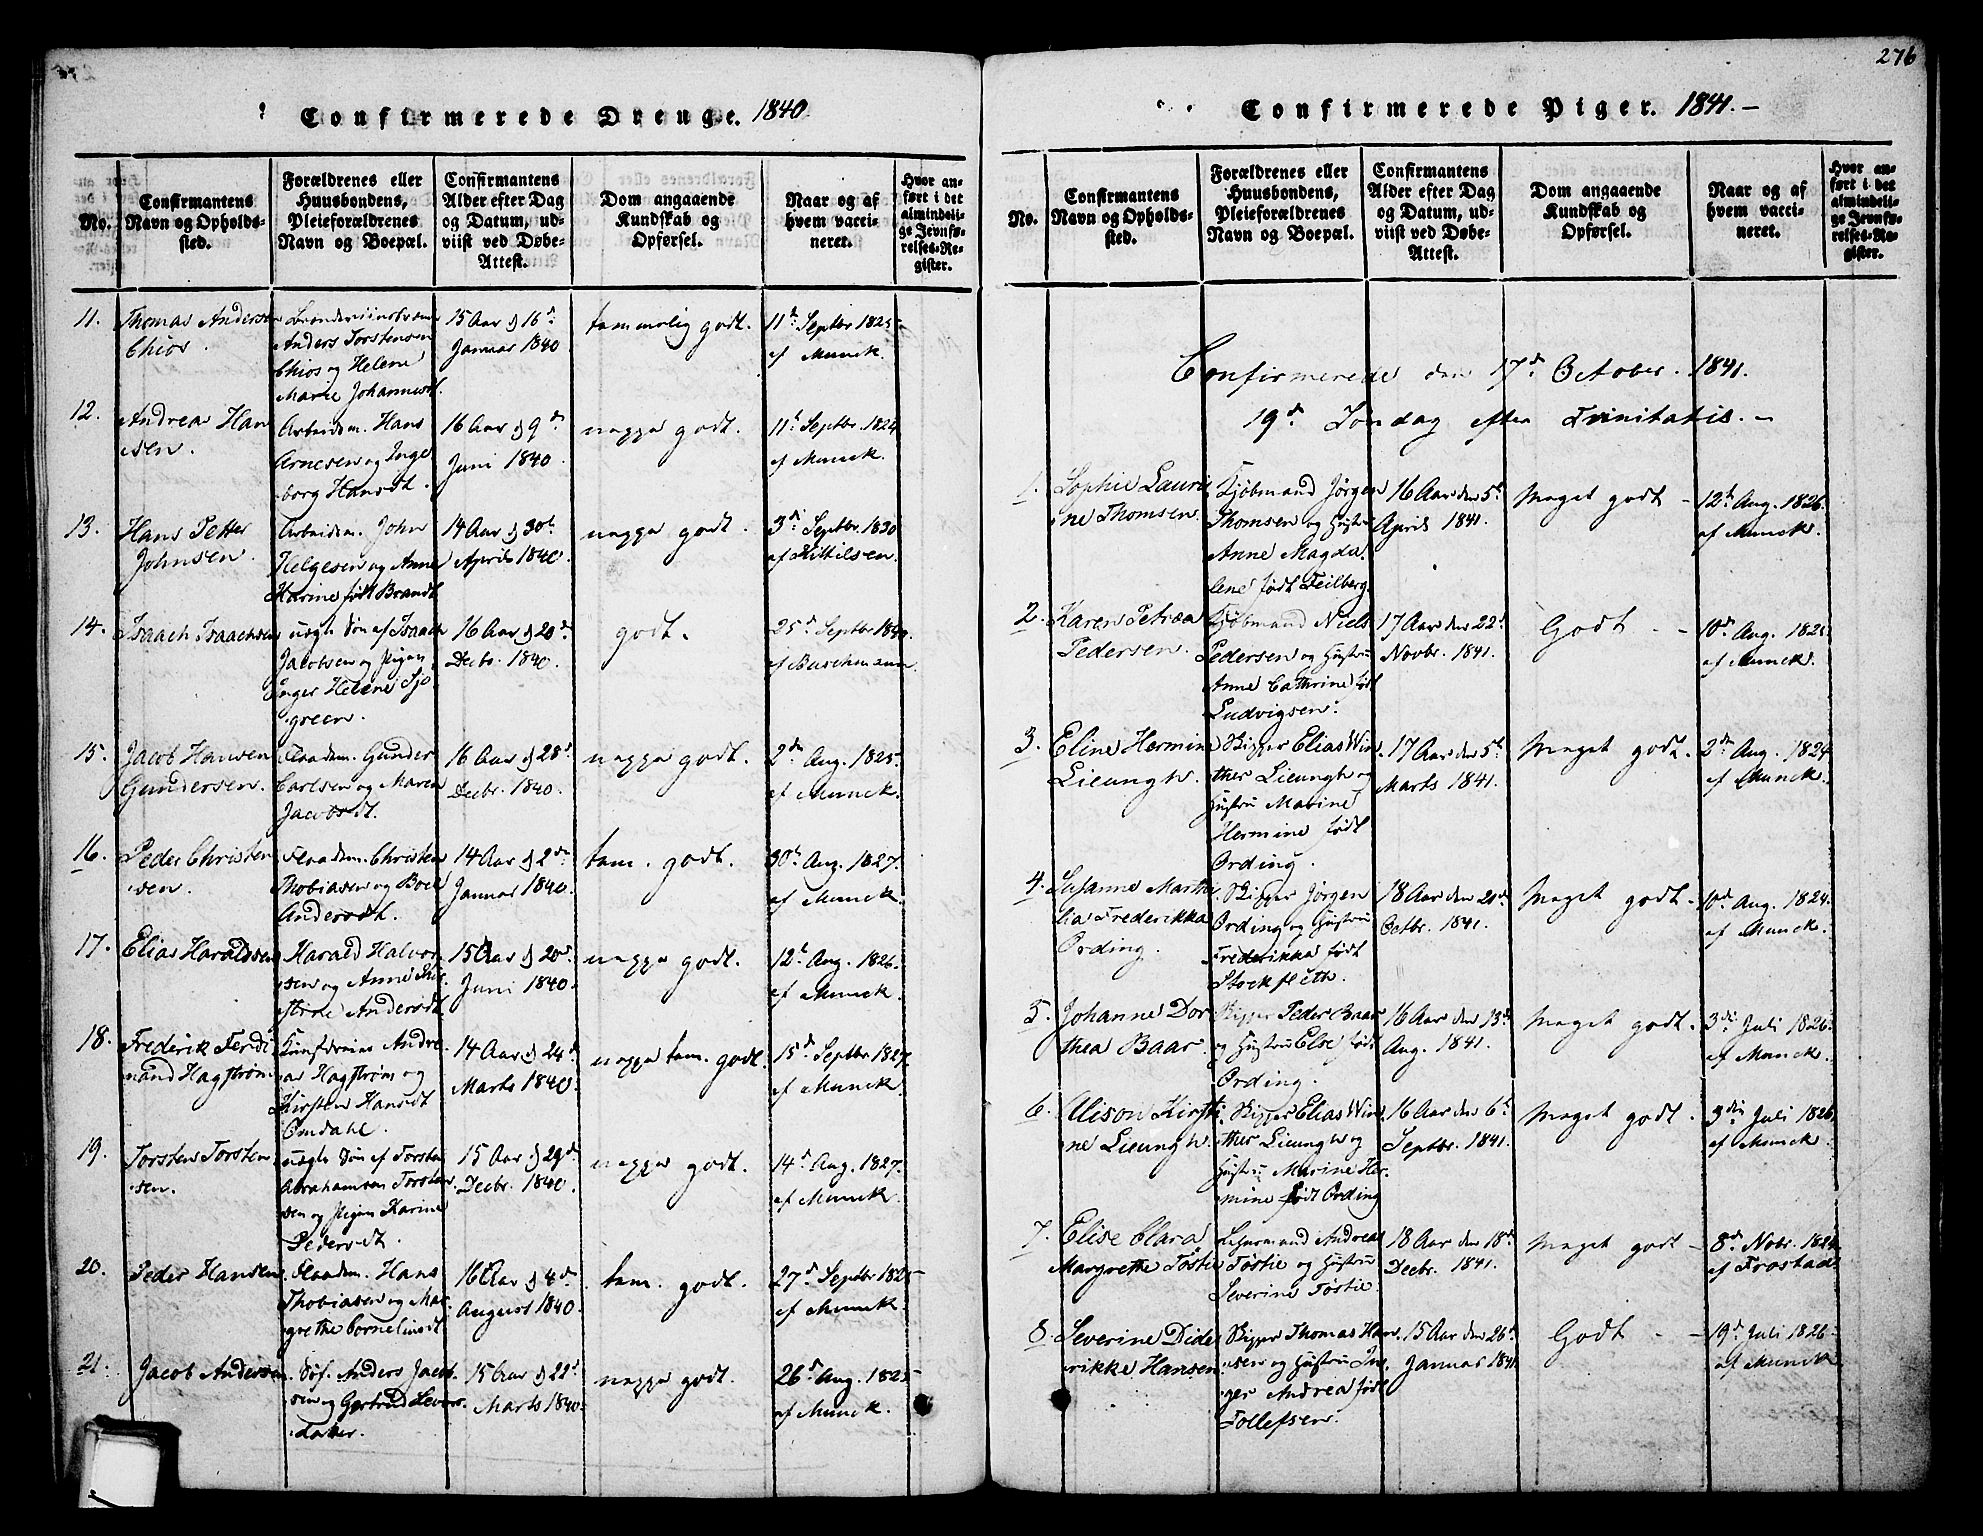 Confirmerede Drenge. 1840
No.
Confirmantens
Navn og Opholds-
sted.
Forældrenes eller
Huusbondens,
Pleieforældrenes
Navn og Boepæl.
Confirmantens
Alder efter Dag
og Datum, ud-
viist ved Døbe-
Attest.
Dom angaaende
Kundskab og
Opførsel.
Naar og af
hvem vacci-
neret.
Hvor an-
ført i det
almindeli-
ge Jevnfø-
relses-Re-
gister.
11.
Thomas Andersen
Chios.
Anders Torstensen
Chios og Helene
Marie Johannesdt.
15 Aar d 16d
Januar 1840
temmelig godt.
11te Septbr 1825
af Munck.
12.
Andreas Han
sen.
Arbeidsm. Hans
Arnesen og Inge
borg Hansdt.
16 Aar d 9de
Juni 1840
noggsaa godt.
11te Septbr. 1824
af Munck.
13.
Hans Petter
Johnsen
Arbeidsm. John
Helgesen og Anne
Karine født Brandt
14 Aar d 30te
Aprils 1840
noggsaa godt.
3d Septbr. 1830
af Kittilsen.
14.
Isaach Isaachsen
uægte Søn af Isaach
Jacobsen og Pigen
Inger Helene Sjo
green.
16 Aar d 20de
Decbr. 1840.
godt.
25d Septbr 1840
af Buschmann
15.
Jacob Hansen
Gundersen.
Flaadem. Gunder
Carlsen og Maren
Jacobsdt.
16 Aar d 28d
Decbr. 1840.
noggsaa godt.
2den Aug. 1825
af Munck.
16.
Peder Christen
sen.
Flaadem. Christen
Thobiasen og Boel
Andersdt.
14 Aar d 2den
Januar 1840.
tem. godt.
30te Aug. 1827.
af Munck.
17.
Elias Haraldsen
Harald Halvor
sen og Anne Kir
stine Andersdt.
15 Aar d 20d
Juni 1840.
noggsaa godt.
12te Aug. 1826.
af Munck.
18.
Frederik Ferdi
nand Hagstrøm
Andre
as Hagstrøm og
Kirsten Hansdt
Omdahl.
14 Aar d 24d
Marts 1840.
noggsaa tem. godt.
15d Septbr 1827.
af Munck.
19.
Torsten Torsten
sen.
uægte Søn af Torsten
Abrahamsen Torsten
sen og Pigen Karine
Pedersdt.
15 Aar d 29de
Decbr. 1840.
noggsaa godt.
14d Aug. 1827.
af Munck.
20.
Peder Hansen
Flaadem. Hans
Thobiasen og Mar
grethe Corneliusdt
16 Aar d 4de
August 1840
tem. godt.
27d Septbr 1825
af Munck.
21.
Jacob Andersen
Søf. Anders Jacob
sen og Gjertrud Severs
datter.
15 Aar d 22d
Marts 1840.
noggsaa godt.
26d Aug. 1825
af Munck.
276
Confirmerede Piger. 1841.-
No.
Confirmantens
Navn og Opholds-
sted.
Forældrenes eller
Huusbondens,
Pleieforældrenes
Navn og Boepæl.
Confirmantens
Alder efter Dag
og Datum, ud-
viist ved Døbe-
Attest.
Dom angaaende
Kundskab og
Opførsel.
Naar og af
hvem vacci-
neret.
Hvor an-
ført i det
almindeli-
ge Jevnfø-
relses-Re-
gister.
Confirmerede den 17de October. 1841.
19de Søndag efter Trinitatis.-
1.
Sophie Lauri
ne Thomsen.
Kjøbmand Jørgen
Thomsen og Hustru
Anne Magda
lene født Feilberg.
16 Aar den 5te
April 1841.
Meget godt -
12te Aug. 1826.
af Munck.
2.
Karen Petrea
Pedersen.
Kjøbmand Niels
Pedersen og Hustru
Anne Cathrine født
Ludvigsen.
17 Aar den 22d
Novbr. 1841.
Godt -
10de Aug. 1825.
af Munck.
3.
Eline Hermine
Lieungh.
Skipper Elias Win
ther Lieungh og
Hustru Marine
Hermine født
Ording.
17 Aar den 5te
Marts 1841.
Meget godt.
2den Aug. 1824
af Munck.
4.
Susanne Marthi
lia Frederikka
Ording.
Skipper Jørgen
Ording og Hustru
Frederikka født
Stockfleth.
18 Aar den 20de
Octbr. 1841.
Meget godt.
10de Aug. 1824.
af Munck.
5.
Johanne Dor
thea Baar.
Skipper Peder Baar
og Hustru Else født
Ording.
16 Aar den 13de
Aug. 1841.
Meget godt.
3die Juli 1826.
af Munck.
6.
Alison Kirsti
ne Lieungh.
Skipper Elias Win
ther Lieungh og
Hustru Marine Her
mine født Ording
16 Aar den 6te
Septbr. 1841.
Meget godt.
3die Juli 1826
af Munck.
7.
Elise Clara
Margrethe Tostie
Andreas
Tøstie og Hustru
Severine Tøstie.
18 Aar den 18de
Decbr. 1841.
Meget godt -
8de Novbr. 1824
af Frostad
8.
Severine Dide
rikke Hansen.
Skipper Thomas Han
sen og Hustru In
ger Andrea født
Tollefsen.
15 Aar den 26te
Januar 1841.
Godt -
19de Juli 1826
af Munck.